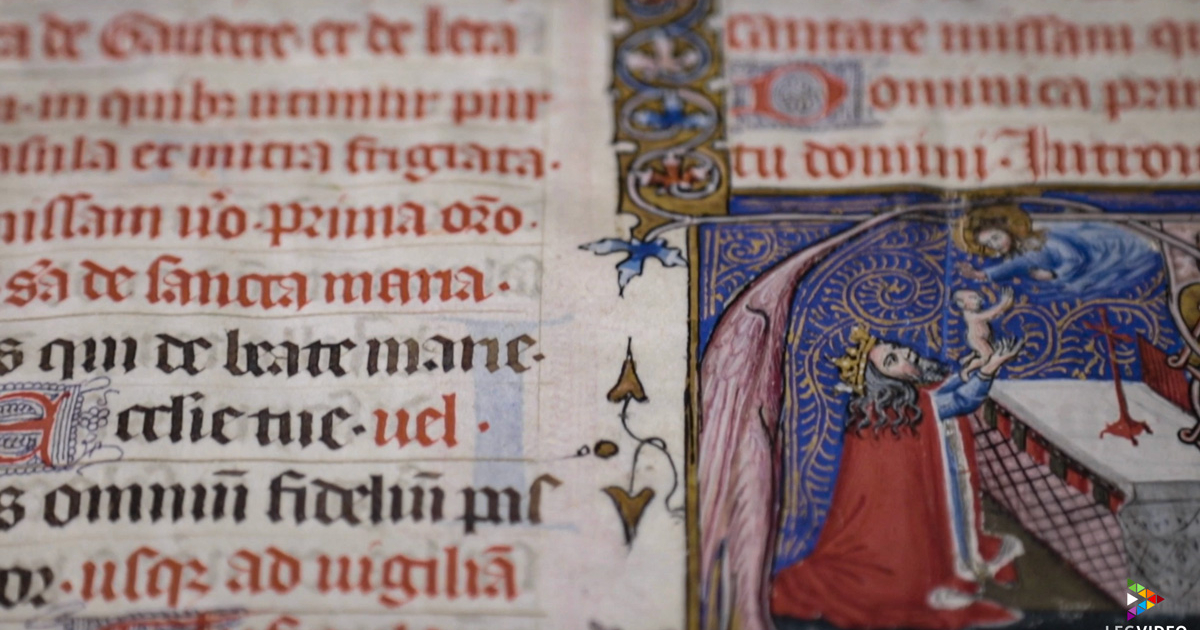 a de Gaudete et de leta
in quibꝫ utimur plur
nsula et mitra frigiata.
missam ũo. prima orõ.
sã de sancta maria.
s qui de beate marie.
cclie tue. uel.
s omniũ fideliũ
or. usqꝫ ad uigiliã
cantare missam qu
Dominica prim
tu domini. Introi
LEGVIDEO